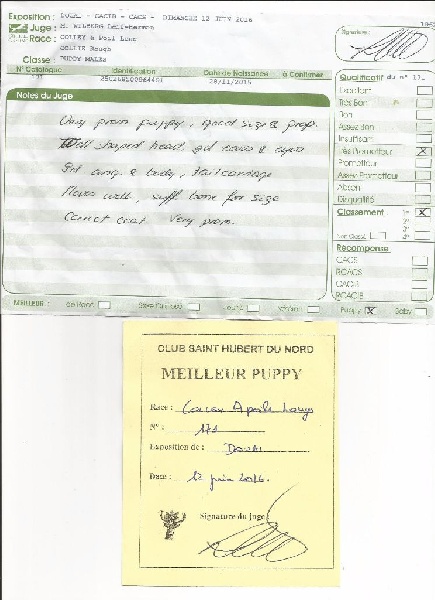 Exposition : DOUAI - CACIB - CACS - DIMANCHE 12 JUIN 2016
Juge : M. WILBERG Leif-Herman
Race : COLLEY à Poil Long
COLLIE Rough
Classe : PUPPY MALES
Signature :
N° Catalogue
Identification
Date de Naissance
à Confirmer
171
28/11/2015
Notes du Juge
Very prom puppy, good size & prop.
Well shaped head, gd ears & eyes
Gd body, tail carriage
Moves well, suff bone for size
Correct coat. Very prom.
Qualificatif du n° 171
Excellent
Très Bon
Bon
Assez Bon
Insuffisant
Très Prometteur X
Prometteur
Assez Prometteur
Absent
Disqualifié
Classement
1er X
2e
3e
4e
Non Classé
Récompense
CACS
RCACS
CACIB
RCACIB
MEILLEUR :
de Race
Sexe Opposé
Jeune
Vétéran
Puppy X
Baby
CLUB SAINT HUBERT DU NORD
MEILLEUR PUPPY
Race : Colley A poils Longs
N° : 171
Exposition de : DOUAI
Date : 12 juin 2016.
Signature du Juge